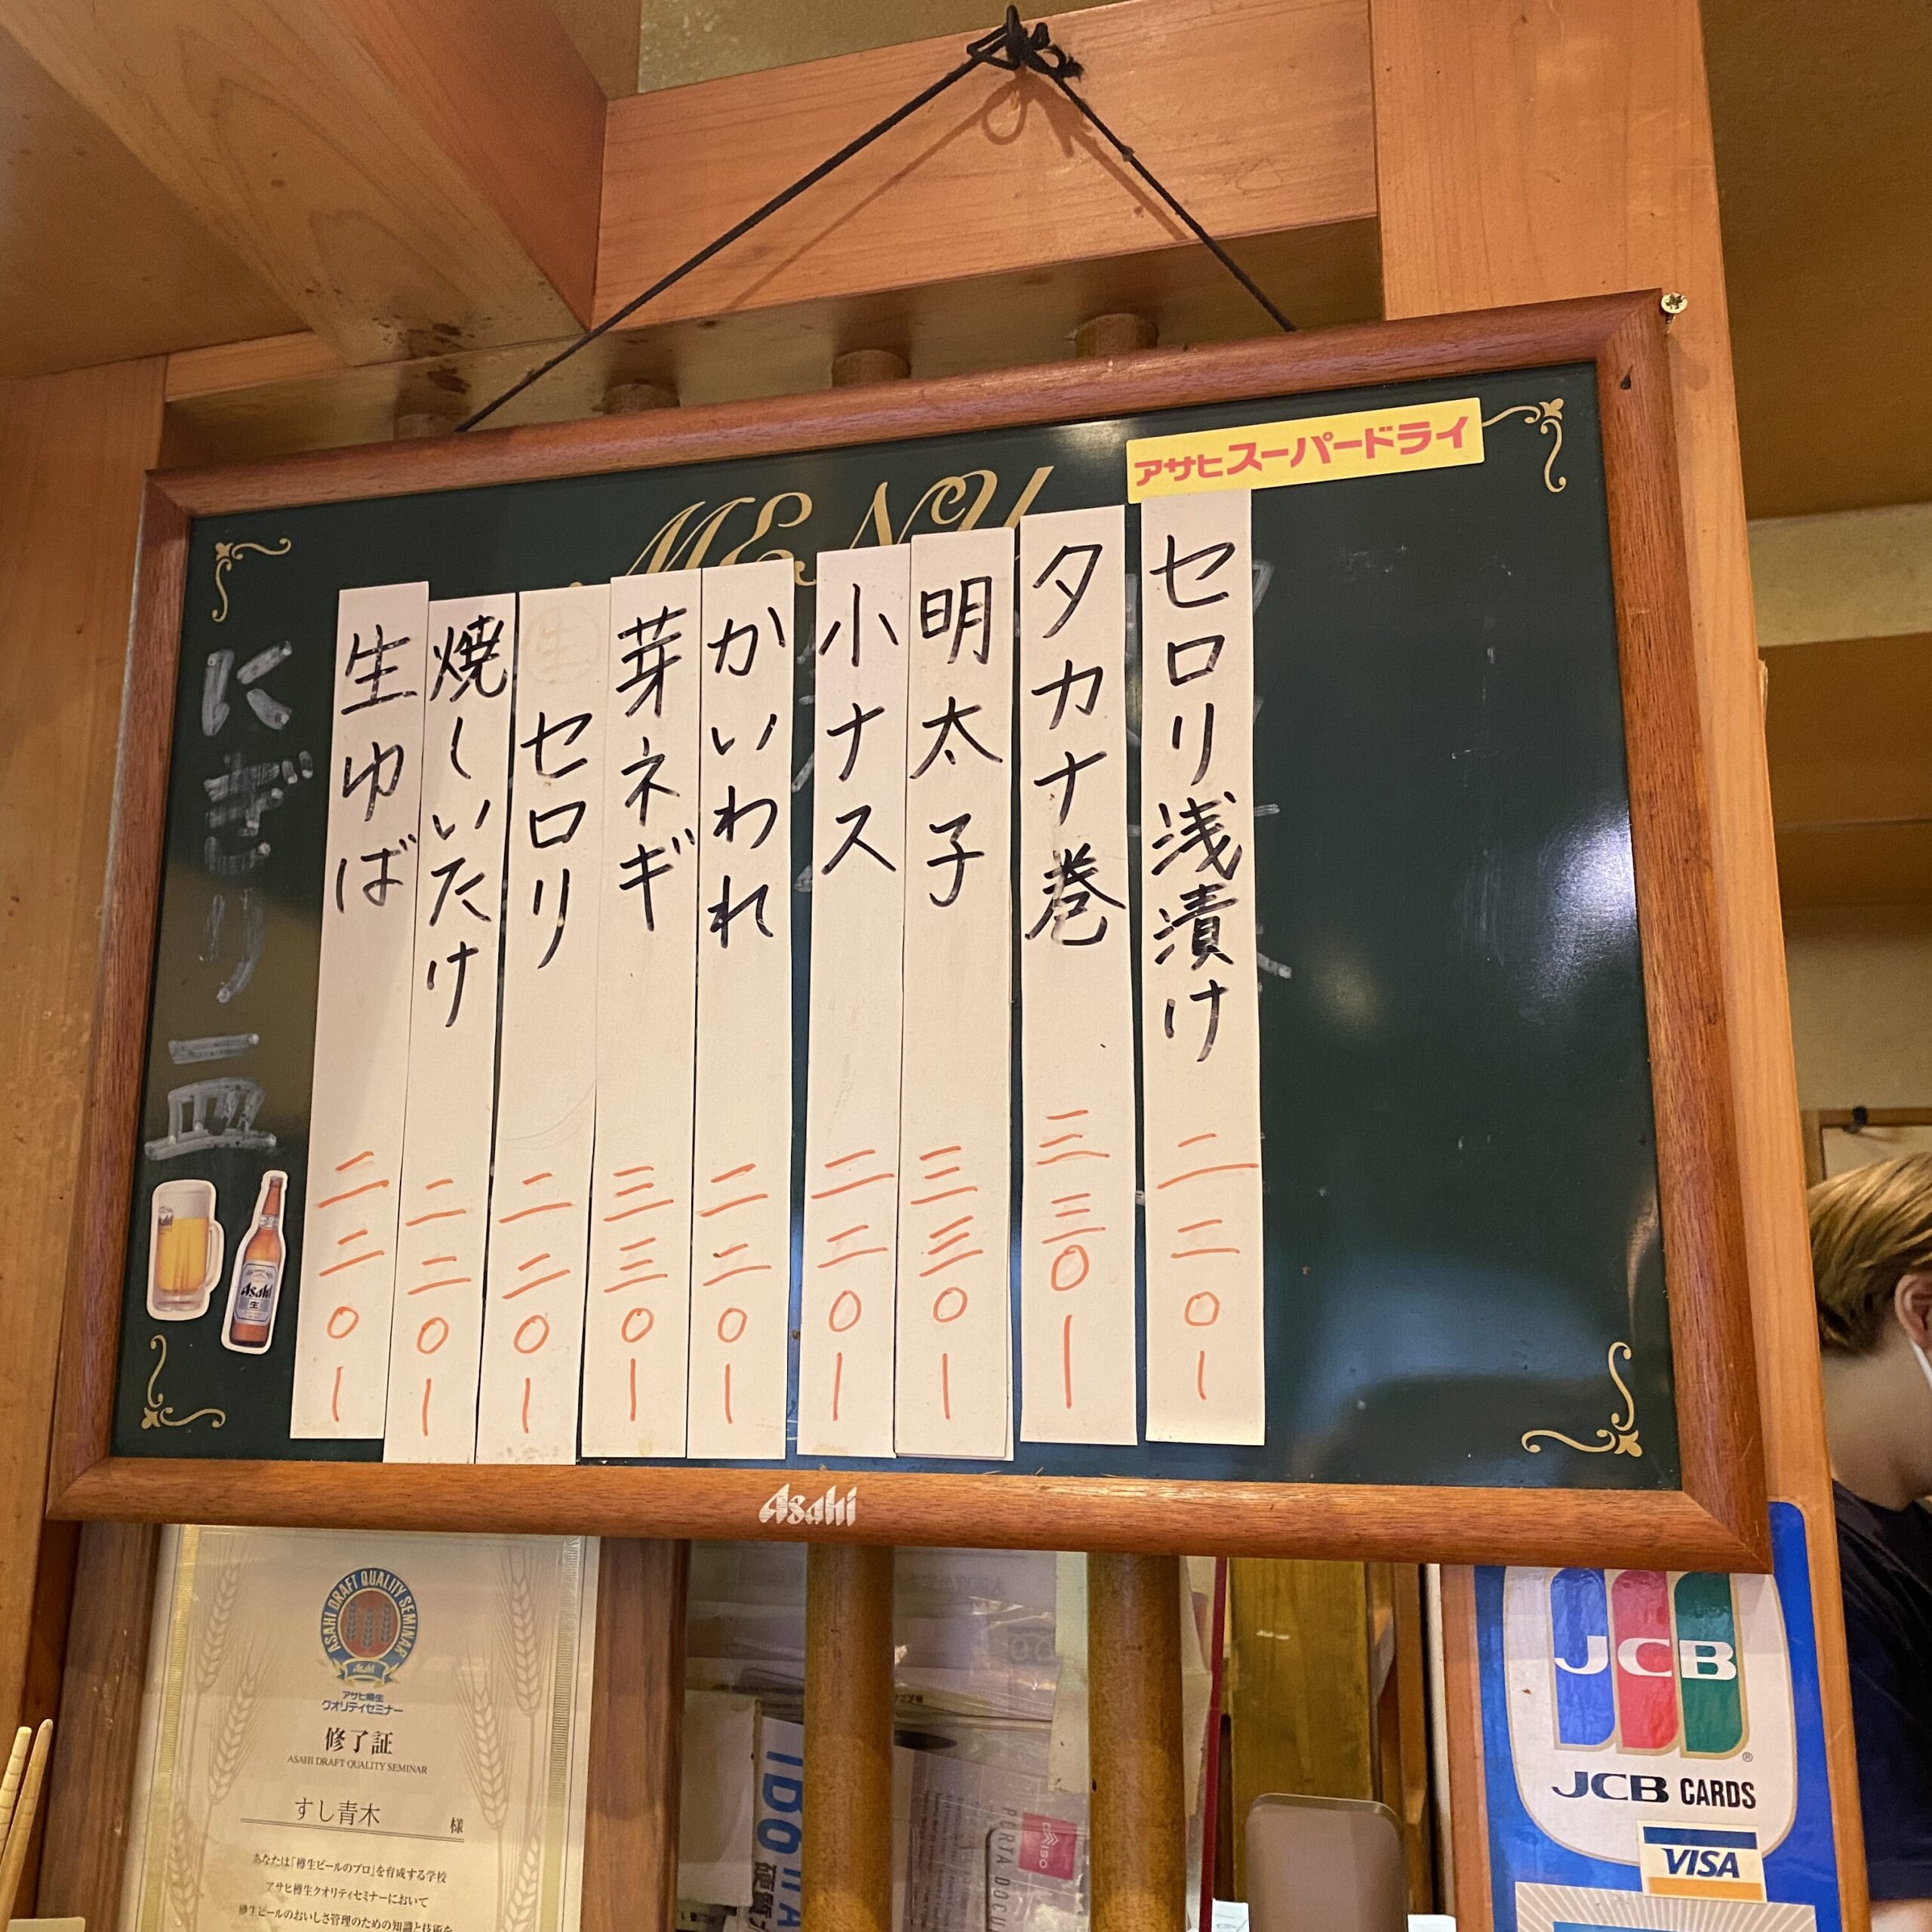 アサヒスーパードライ
MENU
セロリ浅漬け 二二〇一
タカナ巻 三三〇一
明太子 三三〇一
小ナス 二二〇一
かいわれ 二二〇一
芽ネギ 三三〇一
セロリ 二二〇一
焼しいたけ 二二〇一
生ゆば 二二〇一
にぎり一皿
Asahi
生
Asahi
ASAHI DRAFT QUALITY SEMINAR
Asahi
アサヒ樽生
クオリティセミナー
修了証
ASAHI DRAFT QUALITY SEMINAR
すし青木 様
あなたは「樽生ビールのプロ」を育成する学校
アサヒ樽生クオリティセミナーにおいて
樽生ビールのおいしさ管理のための知識と技術を
DAISO
JCB
JCB CARDS
VISA